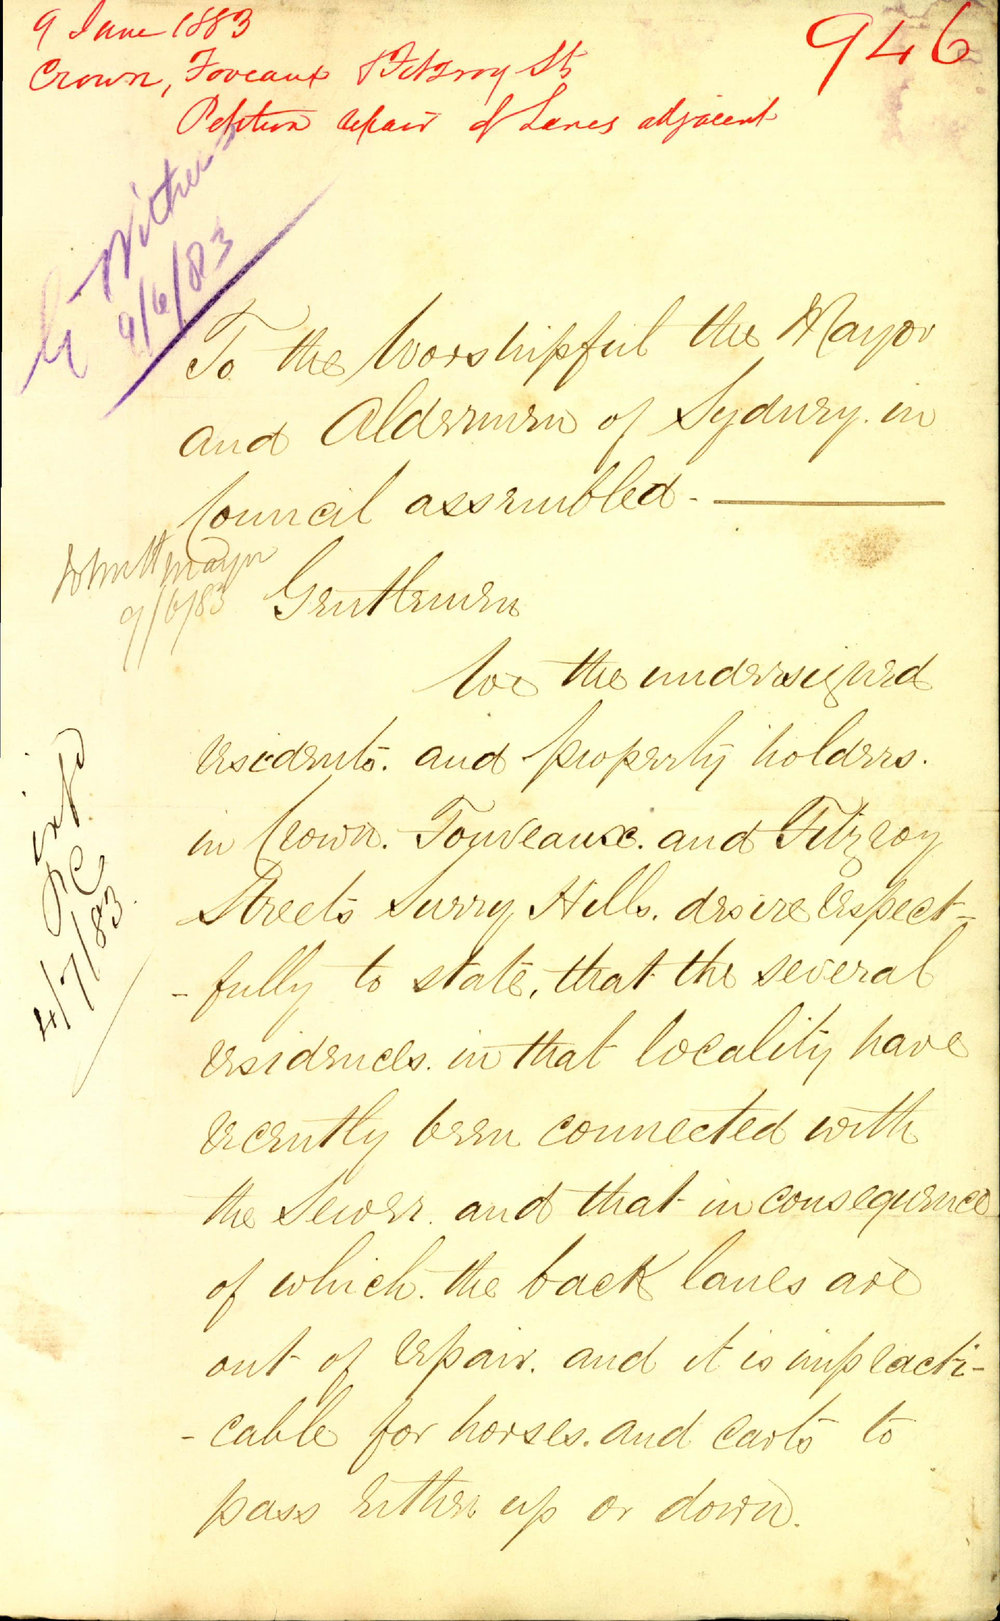 9 June 1883
946
Crown, Foveaux & Fitzroy Sts
Petition repair of Lanes adjacent
9/6/83
To the Worshipful the Mayor
and Aldermen of Sydney. in
Council assembled -
9/6/83
Gentlemen
We the undersigned
residents. and property holders.
in Crown. Fouveaux. and Fitzroy
Streets Surry Hills. desire respect-
- fully to state, that the several
residences. in that locality have
recently been connected with
the Sewer. and that in consequence
of which. the back lanes are
out of repair. and it is impracti-
- cable for horses. and carts to
pass either up or down.
4/7/83